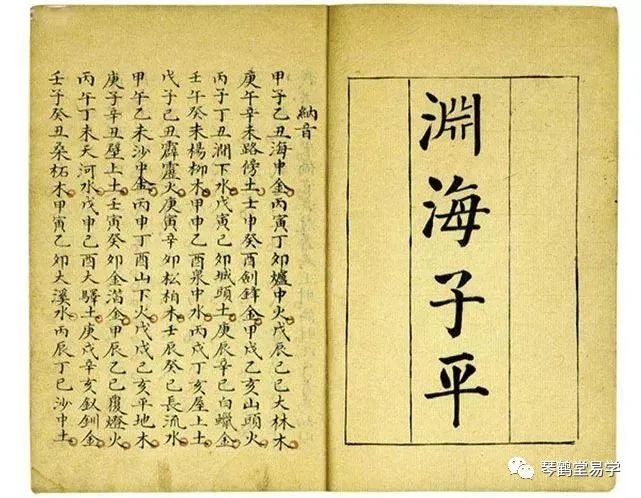 淵海子平
納音
甲子乙丑海中金丙寅丁卯爐中火戊辰己巳大林木
庚午辛未路傍土壬申癸酉劍鋒金甲戌乙亥山頭火
丙子丁丑澗下水戊寅己卯城頭土庚辰辛巳白蠟金
壬午癸未楊柳木甲申乙酉泉中水丙戌丁亥屋上土
戊子己丑霹靂火庚寅辛卯松柏木壬辰癸巳長流水
甲午乙未沙中金丙申丁酉山下火戊戌己亥平地木
庚子辛丑壁上土壬寅癸卯金箔金甲辰乙巳覆燈火
丙午丁未天河水戊申己酉大驛土庚戌辛亥釵釧金
壬子癸丑桑柘木甲寅乙卯大溪水丙辰丁巳沙中土
琴鹤堂易学